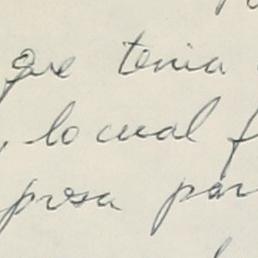 que tenia
, lo cual f
prosa par